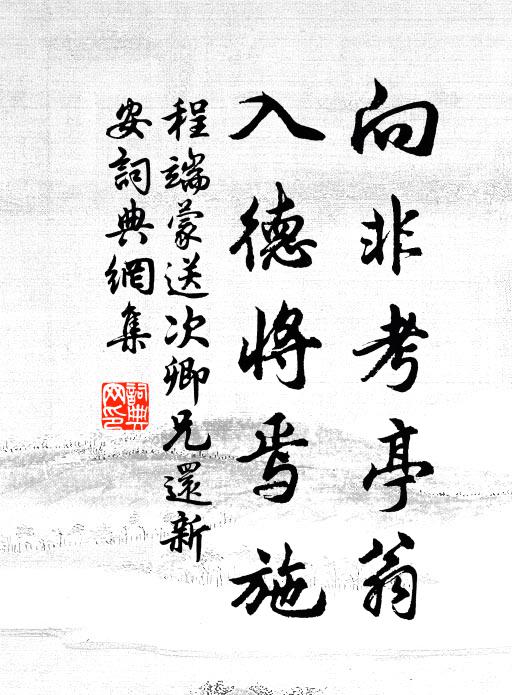 向非考亭翁
入德将焉施
程端蒙送次卿兄還新
安詞典網集
詞典
网印